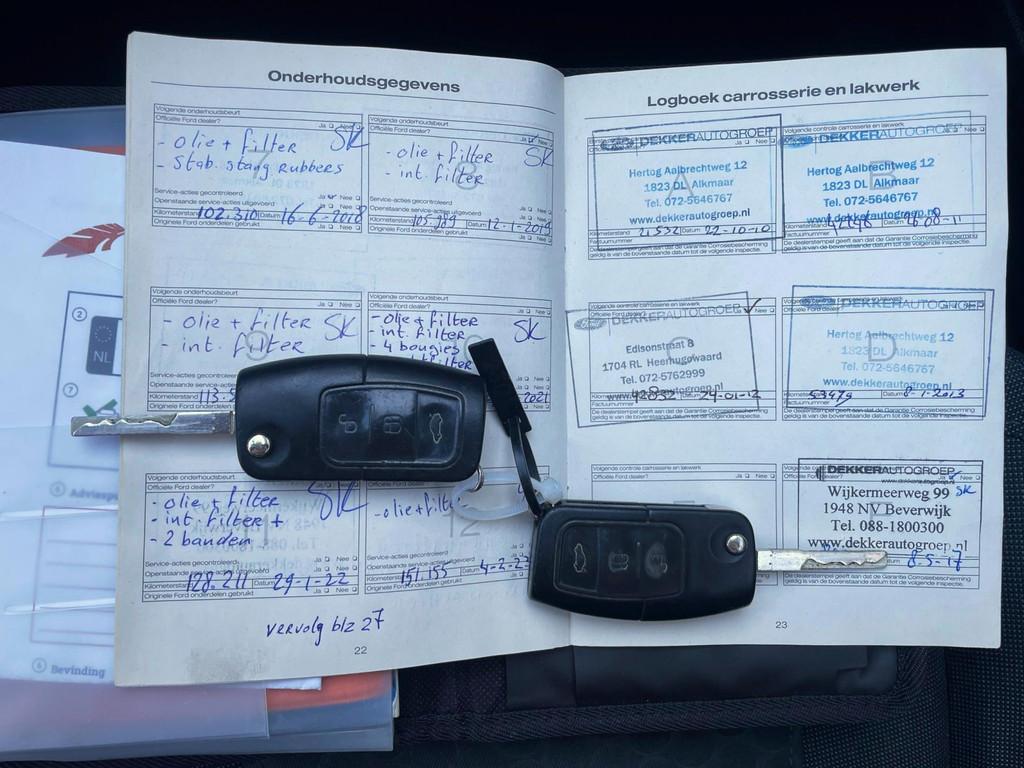 Onderhoudsgegevens
Volgende onderhoudsbeurt
Officiële Ford dealer? Ja Nee
- olie + filter SK
- Stab. stang Rubbers
Service-acties gecontroleerd
Openstaande service-acties uitgevoerd
Kilometerstand 102.310 Datum 16-6-2018
Originele Ford onderdelen gebruikt Ja Nee
Volgende onderhoudsbeurt
Officiële Ford dealer? Ja Nee
- olie + filter SK
- int. filter
8
Service-acties gecontroleerd
Openstaande service-acties uitgevoerd
Kilometerstand 105.989 Datum 12-1-2019
Originele Ford onderdelen gebruikt Ja Nee
Volgende onderhoudsbeurt
Officiële Ford dealer? Ja Nee
- olie + filter SK
- int. filter
9
Service-acties gecontroleerd
Openstaande service-acties
Kilometerstand 113.
Originele Ford onderdelen
Volgende onderhoudsbeurt
Officiële Ford dealer? Ja Nee
- olie + filter SK
- int. filter
- 4 bougies
filter
2021
Volgende onderhoudsbeurt
Officiële Ford dealer? Ja Nee
- olie + filter SK
- int. filter +
- 2 banden
Service-acties gecontroleerd
Openstaande service-acties uitgevoerd
Kilometerstand 128.211 Datum 29-1-22
Originele Ford onderdelen gebruikt Ja Nee
- olie + filt
12
Service-acties gecontroleerd
Openstaande service-acties uitgevoerd
Kilometerstand 151.155 Datum 4-2-23
Originele Ford onderdelen gebruikt Ja Nee
vervolg blz 27
22
Logboek carrosserie en lakwerk
A
DEKKERAUTOGROEP
Hertog Aalbrechtweg 12
1823 DL Alkmaar
Tel. 072-5646767
www.dekkerautogroep.nl
Kilometerstand 21532 Datum 29-10-10
Factuurnummer
De dealerstempel geeft aan dat de Garantie Corrosiebescherming
geldig is van de bovenstaande datum tot de volgende inspectie.
Volgende controle carrosserie en lakwerk
B
DEKKERAUTOGROEP
Hertog Aalbrechtweg 12
1823 DL Alkmaar
Tel. 072-5646767
www.dekkerautogroep.nl
Factuurnummer
De dealerstempel geeft aan dat de Garantie Corrosiebescherming
geldig is van de bovenstaande datum tot de volgende inspectie.
Volgende controle carrosserie en lakwerk
Officiële Ford dealer?
C
Ford DEKKERAUTOGROEP
Edisonstraat 8
1704 RL Heerhugowaard
Tel. 072-5762999
www.dekkerautogroep.nl
Kilometerstand 42832 Datum 24-01-12
Factuurnummer
De dealerstempel geeft aan dat de Garantie Corrosiebescherming
geldig is van de bovenstaande datum tot de volgende inspectie.
D
DEKKERAUTOGROEP
Hertog Aalbrechtweg 12
1823 DL Alkmaar
Tel. 072-5646767
www.dekkerautogroep.nl
Kilometerstand 53479 Datum 8-1-2013
Factuurnummer
De dealerstempel geeft aan dat de Garantie Corrosiebescherming
geldig is van de bovenstaande datum tot de volgende inspectie.
Volgende controle carrosserie en lakwerk
Officiële Ford dealer? Ja Nee
Volgende controle carrosserie en lakwerk
DEKKERAUTOGROEP
www.dekkerautogroep.nl
Wijkermeerweg 99 SK
1948 NV Beverwijk
Tel. 088-1800300
www.dekkerautogroep.nl
8-5-17
De dealerstempel geeft aan dat de Garantie Corrosiebescherming
geldig is van de bovenstaande datum tot de volgende inspectie.
23
2
NL
7
6 Bevinding